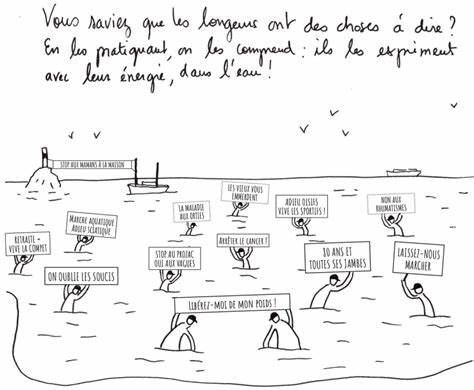 Vous saviez que les longeurs ont des choses à dire ?
En les pratiquant, on les comprend : ils les expriment
avec leur énergie, dans l'eau !
STOP AUX MAMANS À LA MAISON
LES VIEUX VOUS
EMMERDENT
LA MALADIE
AUX ORTIES
ADIEU OISIFS
VIVE LES SPORTIFS !
NON AUX
RHUMATISMES
MARCHE AQUATIQUE
ADIEU SCIATIQUE
RETRAITE -
VIVE LA COMPET
STOP AU PROZAC
OUI AUX VAGUES
ARRÊTER LE CANCER !
80 ANS ET
TOUTES SES JAMBES
LAISSEZ-NOUS
MARCHER
ON OUBLIE LES SOUCIS
LIBÉREZ-MOI DE MON POIDS !